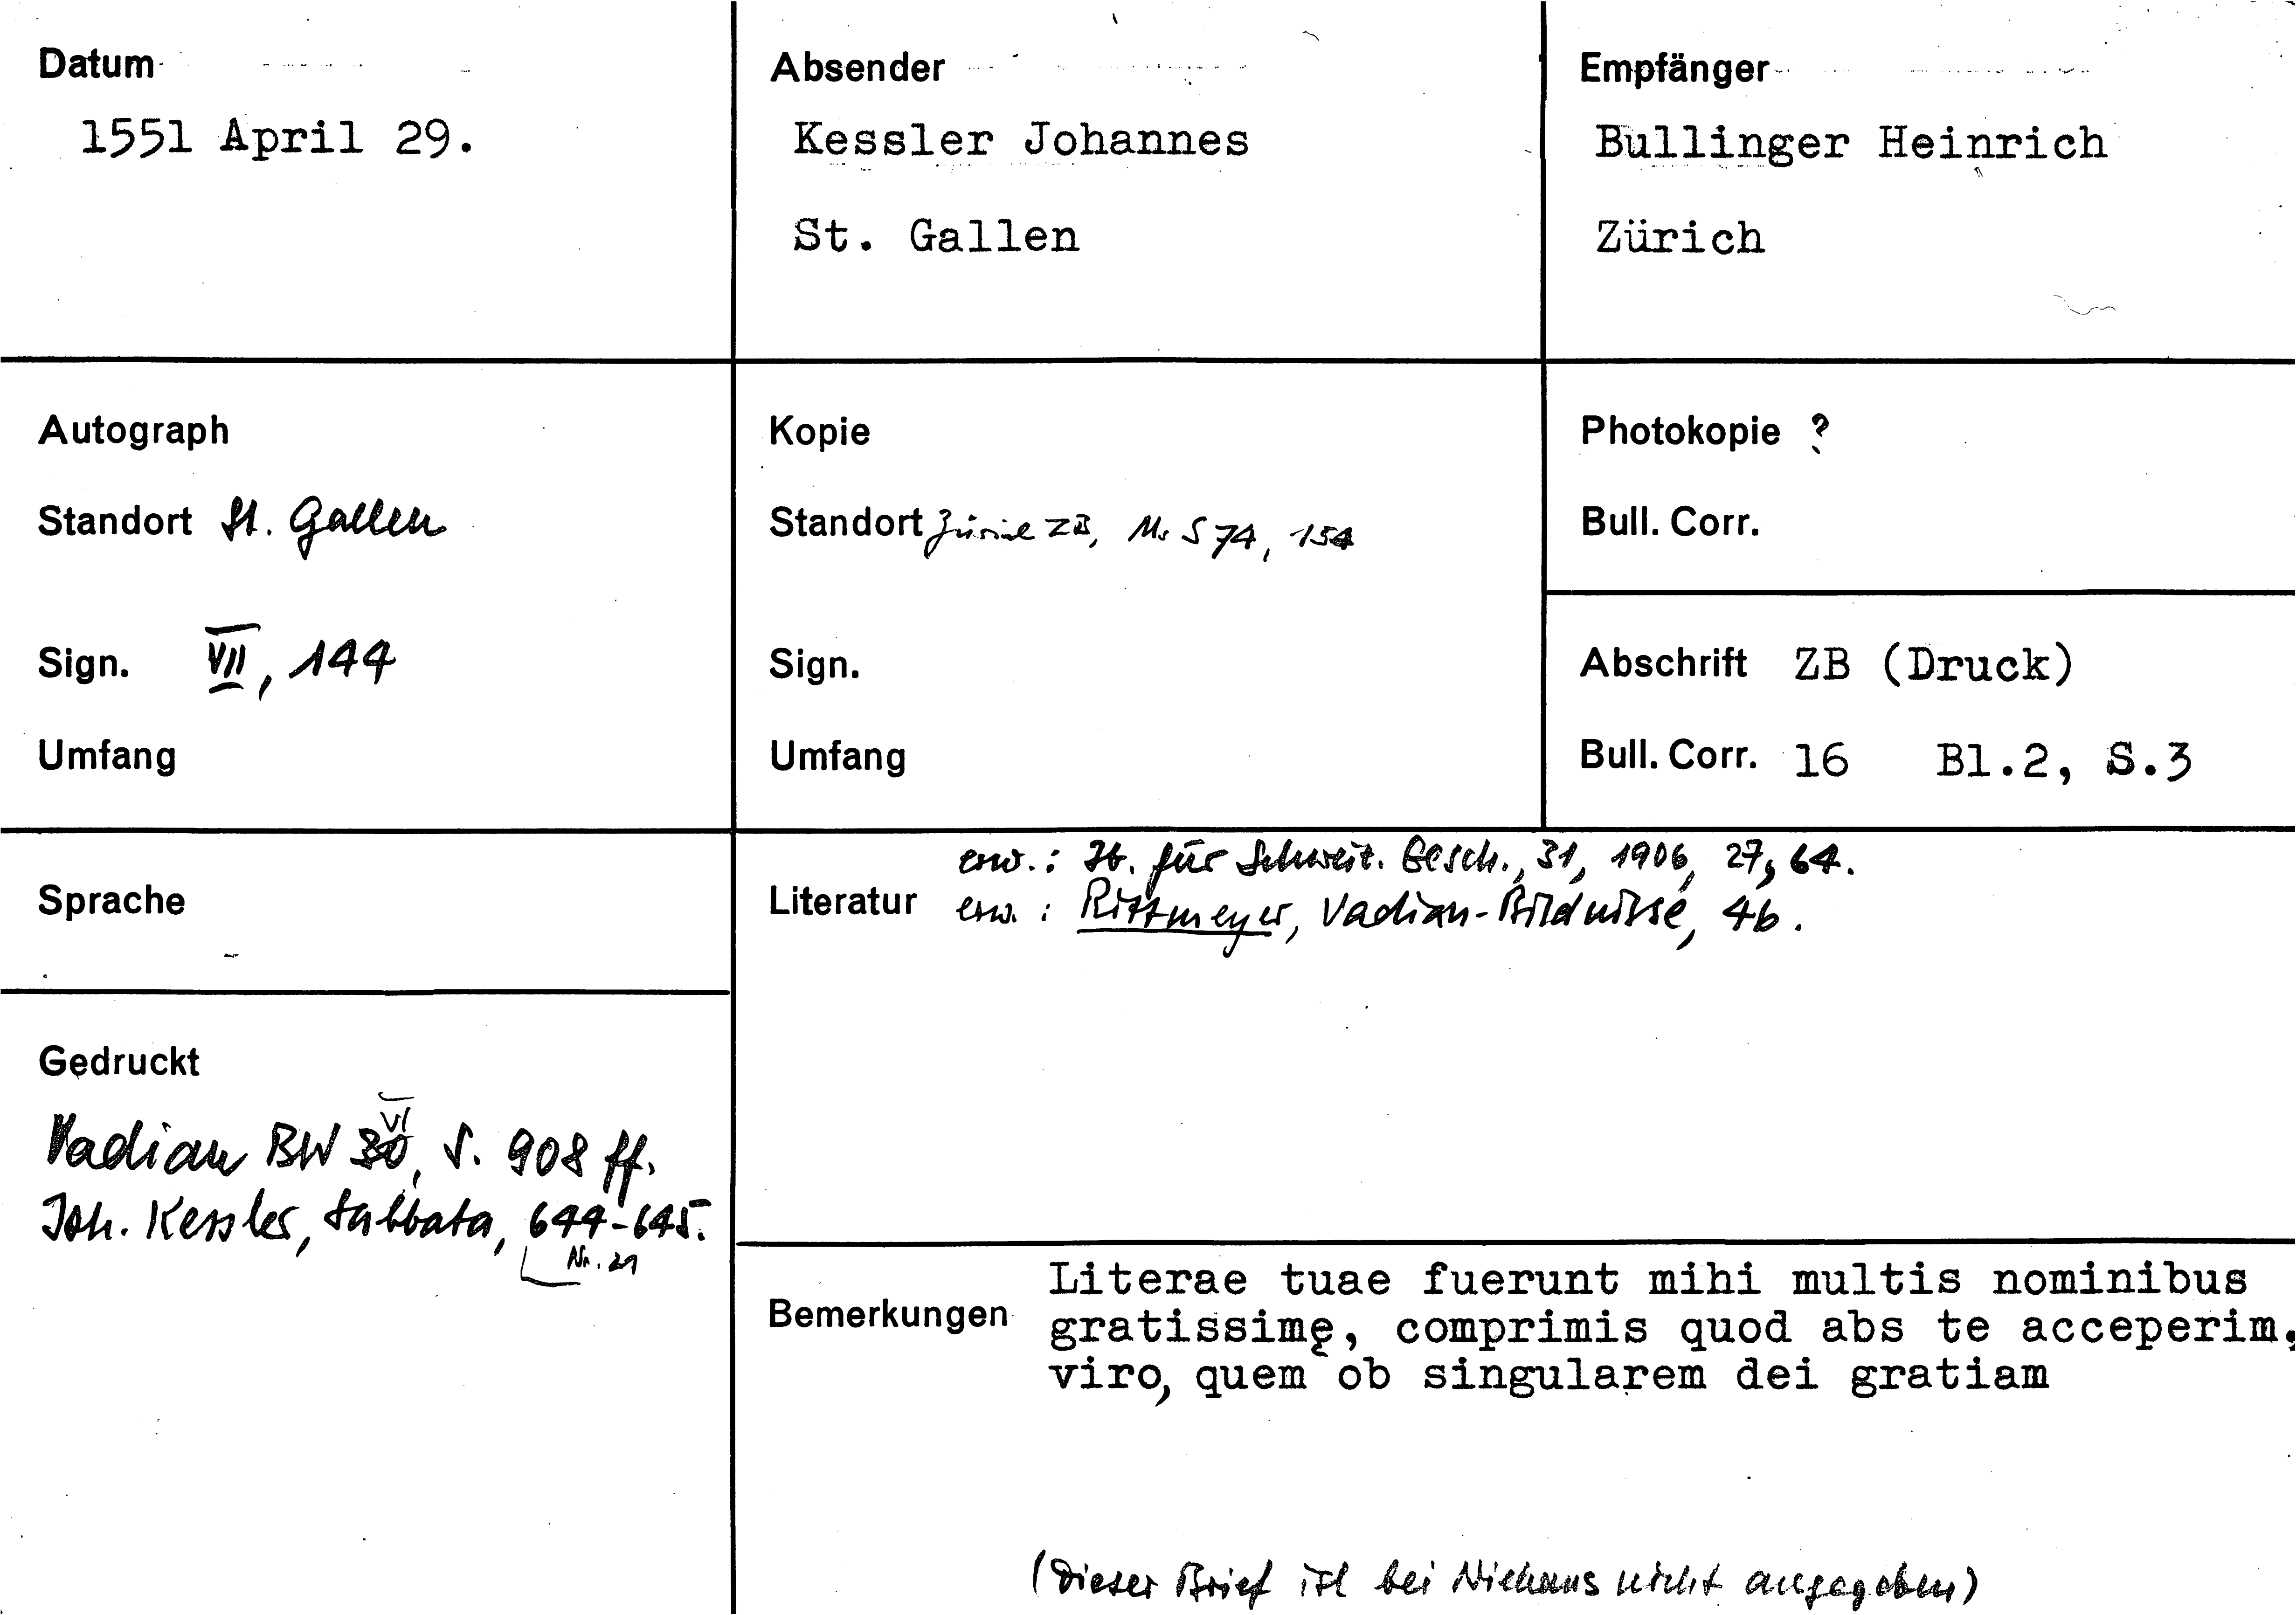 Datum
1551 April 29.
Absender
Kessler Johannes
St. Gallen
Empfänger
Bullinger Heinrich
Zürich
Autograph
Standort St. Gallen
Sign. VII, 144
Umfang
Kopie
Standort Zürich ZB, Ms S 74, 154
Sign.
Umfang
Photokopie ?
Bull. Corr.
Abschrift ZB (Druck)
Bull. Corr. 16 Bl.2, S.3
Sprache
Literatur
erw.: Jb. für Schweiz. Gesch., 31, 1906, 27, 64.
erw.: Rittmeyer, Vadian-Bildnisse, 46.
Gedruckt
Vadian BW VI, S. 908 ff.
Joh. Kessler, Sabbata, 644-645.
Nr. 21
Bemerkungen
Literae tuae fuerunt mihi multis nominibus
gratissimę, comprimis quod abs te acceperim,
viro, quem ob singularem dei gratiam
(Dieser Brief ist bei Niehans nicht angegeben)